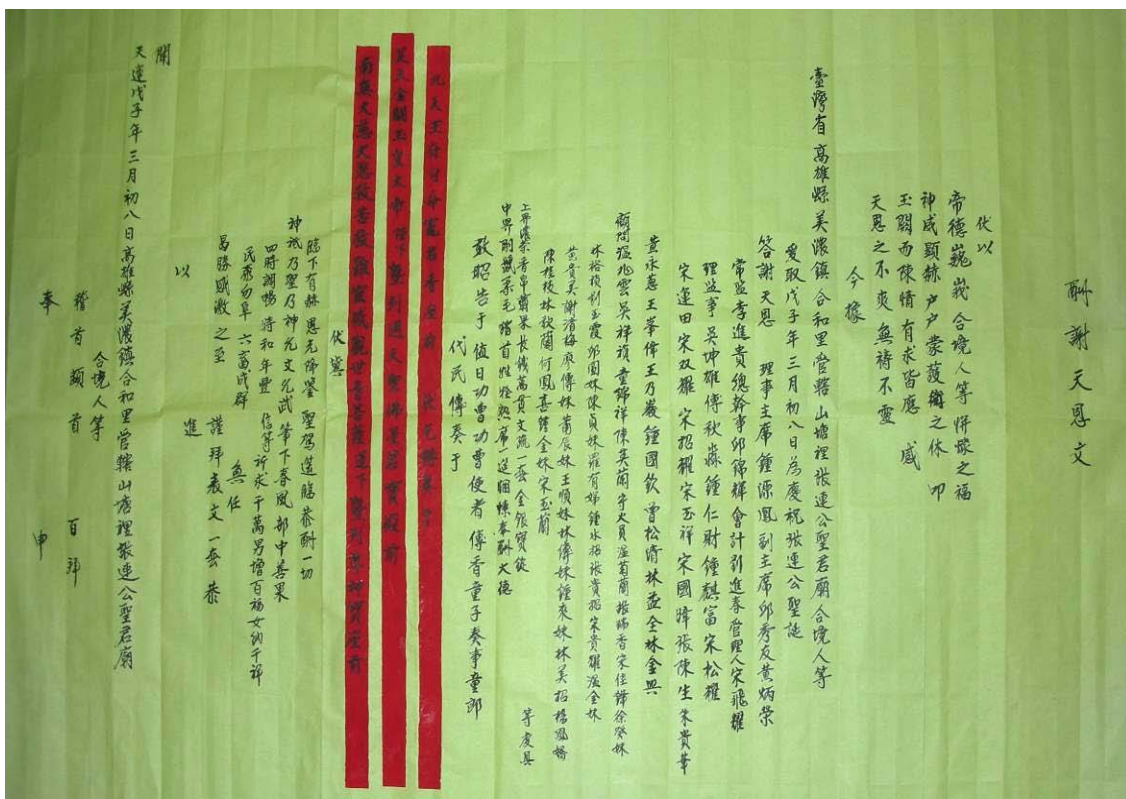 酬謝天恩文
伏以
帝德巍峩合境人等 恍懷之福
神威顯赫戶戶蒙護衛之休 叩
玉闕而陳情有求皆應 感
天恩之不爽無禱不靈
今據
臺灣省高雄縣美濃鎮合和里管轄山塘裡張連公聖君廟合境人等
爰取戊子年三月初八日為慶祝張連公聖誕
答謝天恩 理事主席鍾源凰副主席邱秀友黃炳榮
常監李進貴總幹事邱錦輝會計劉進春管理人宋飛耀
理監事吳坤雄傅秋淼鍾仁財鍾麒富宋松耀
宋運田宋双耀宋招耀宋玉祥宋國暐張陳生朱貴華
黃永意王峯偉王乃嚴鍾國欽曾松清林盃全林金興
顧問溫兆雲吳祥禎童錦祥陳英蘭守火員溫菊蘭張瑞香宋佳鋒徐癸妹
林裕禎劉玉霞邱園妹陳貞妹羅有娣鍾水招張貴招宋貴耀溫金妹
黃貴英謝清梅廖傳妹黃辰妹王順妹林傳妹鍾來妹林美招楊鳳嬌
陳桂枝林秋蘭何鳳喜鍾全妹宋玉蘭 等虔具
上界清茶香帛齋果長錢萬貫文疏一套金銀寶袋
中界剛鬣柔毛鷄首牲牷熟席一筵桐悚奉酬大德
敢昭告于 值日功曹功曹使者傳香童子奏事童郎
代民傳奏于
九天玉府司命竈君香座前
昊天金闕玉皇大帝陛下暨列週天聖佛星君寶殿前
南無大慈大悲救苦救難靈感觀世音菩薩蓮下暨列尊神寶座前
伏冀
臨下有赫恩光降鑒 聖駕遙臨恭酬一切
神祇乃聖乃神允文允武筆下春風部中善果
四時調暢 時和年豐 信等祈求千萬男增百福女納千祥
民康物阜 六畜成群 無任
曷勝感激之至 謹拜表文一套恭
進
以
聞
天運戊子年三月初八日高雄縣美濃鎮合和里管轄山塘裡張連公聖君廟
合境人等
稽首頓首 百拜
奉 申